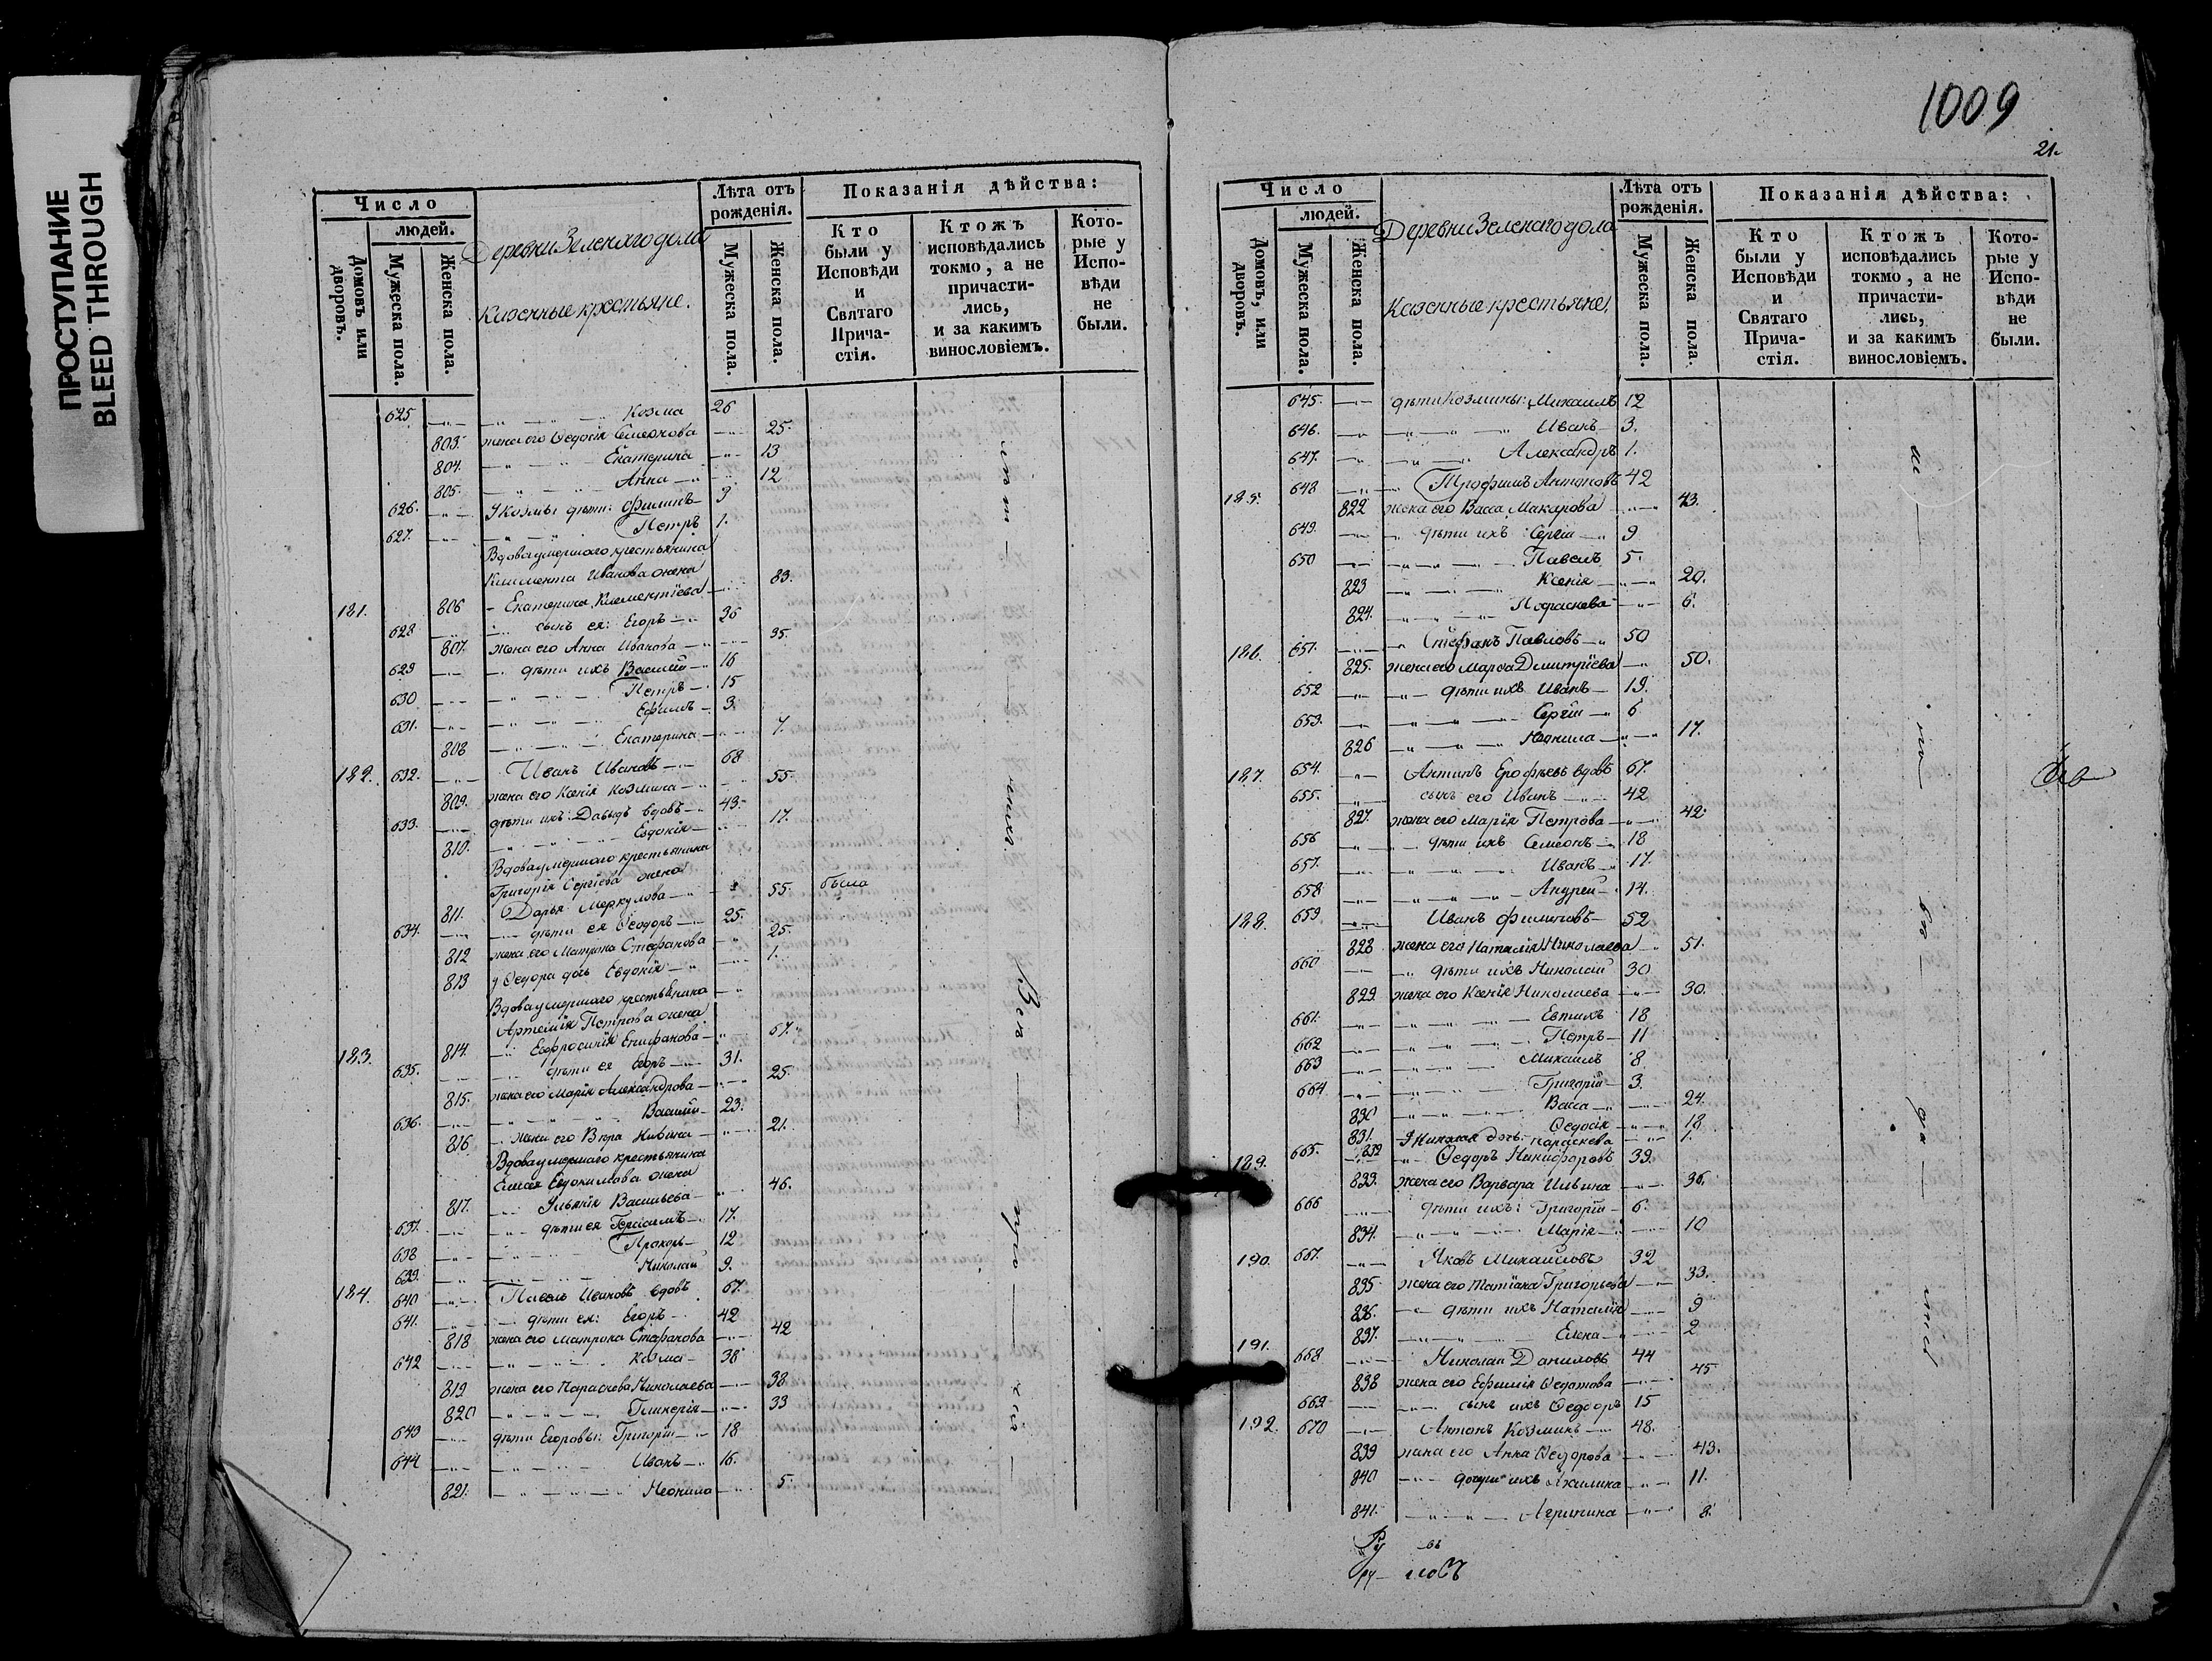 ПРОСТУПАНИЕ
BLEED THROUGH
Число
людей.
Домовъ или дворовъ.
Мужеска пола.
Женска пола.
Деревни Зеленаго дола
Казенные крестьяне.
Лѣта отъ рожденія.
Мужеска пола.
Женска пола.
Показанія дѣйства:
Кто были у Исповѣди и Святаго Причастія.
Ктожъ исповѣдались токмо, а не причастились, и за какимъ винословіемъ.
Которые у Исповѣди не были.
625. Козма 26
803. жена его Ѳедосія Семенова 25.
804. Екатерина 13
805. Анна 12
626. У Козмы дѣти: Филипъ 3
627. Петръ 1.
Вдова умершаго крестьянина
Климента Иванова жена
181. 806 Екатерина Клементіева 83.
628 сынъ ея: Егоръ 36
807. жена его Анна Иванова 35.
629 дѣти ихъ Василій 16
630 Петръ 15
631. Ефимъ 3.
808 Екатерина 7.
182. 632. Иванъ Ивановъ 68
809. жена его Ксенія Козмина 55.
633. дѣти ихъ: Давыдъ вдовъ 43.
810. Евдокія 17.
Вдова умершаго крестьянина
Григорія Сергіева жена
811. Дарья Меркулова 55. была
634. дѣти ея Ѳеодоръ 25.
812 жена его Матрона Стефанова 25.
813 у Ѳедора дочь Евдокія 1.
Вдова умершаго крестьянина
Артемія Петрова жена
183. 814. Евфросинія Епифанова 67.
635. дѣти ея Егоръ 31.
815. жена его Марія Александрова 25.
636. Василій 23.
816 жена его Вѣра 21.
Вдова умершаго крестьянина
Евдокимова жена
817. Ульянія Васильева 46.
637. дѣти ея Герасимъ 17.
638 Прохоръ 12
639. Николай 9.
184. 640 Павелъ Ивановъ вдовъ 67.
641. дѣти ея: Егоръ 42
818 жена его Матрона Стефанова 42
642 Козма 38
819 жена его Параскева Николаева 38
820 Гликерія 33
643 дѣти Егоровы: Григорій 18
644 Иванъ 16.
821. Неонила 5.
1009
21.
Число
людей.
Домовъ, или дворовъ.
Мужеска пола.
Женска пола.
Деревни Зеленаго дола
Казенные крестьяне.
Лѣта отъ рожденія.
Мужеска пола.
Женска пола.
Показанія дѣйства:
Кто были у Исповѣди и Святаго Причастія.
Ктожъ исповѣдались токмо, а не причастились, и за какимъ винословіемъ.
Которые у Исповѣди не были.
645. дѣти Козмины: Михаилъ 12
646. Иванъ 3.
647. Александръ 1.
185. 648 Трофимъ Антоновъ 42
822 жена его Васса Макарова 43.
649. дѣти ихъ: Сергій 9
650 Павелъ 5.
823 Ксенія 20.
824. Параскева 6.
186. 651. Стефанъ Павловъ 50
825. жена его Марѳа Димитріева 50.
652 дѣти ихъ Иванъ 19.
653. Сергій 6
826 Неонила 17.
187. 654. Антипъ Ерофѣевъ вдовъ 67.
655. сынъ его Иванъ 42
827. жена его Марія Петрова 42.
656 дѣти ихъ Семеонъ 18
657. Иванъ 17.
658 Андрей 14.
188. 659 Иванъ Филиповъ 52
828 жена его Наталія Николаева 51.
660 дѣти ихъ Николай 30
829. жена его Ксенія Николаева 30.
661. Евтихъ 18
662 Петръ 11
663 Михаилъ 8.
664 Григорій 3.
830 Васса 24.
831. Ѳедосія 18
832 У Николая дочь: Параскева 1.
189. 665. Ѳедоръ Никифоровъ 39.
833. жена его Варвара Ильина 36.
666 дѣти ихъ: Григорій 6.
834. Марія 10
190. 667. Яковъ Михаиловъ 32
835 жена его Татіана Григорьева 33.
836. дѣти ихъ Наталія 9
837. Елена 2
191. 668 Николай Даниловъ 44
838 жена его Ефимія Ѳедотова 45
669 сынъ ихъ Ѳедоръ 15
192. 670 Антонъ Козминъ 48.
839 жена его Анна Ѳедорова 43.
840 дочери ихъ Акилина 11.
841. Агрипина 8.